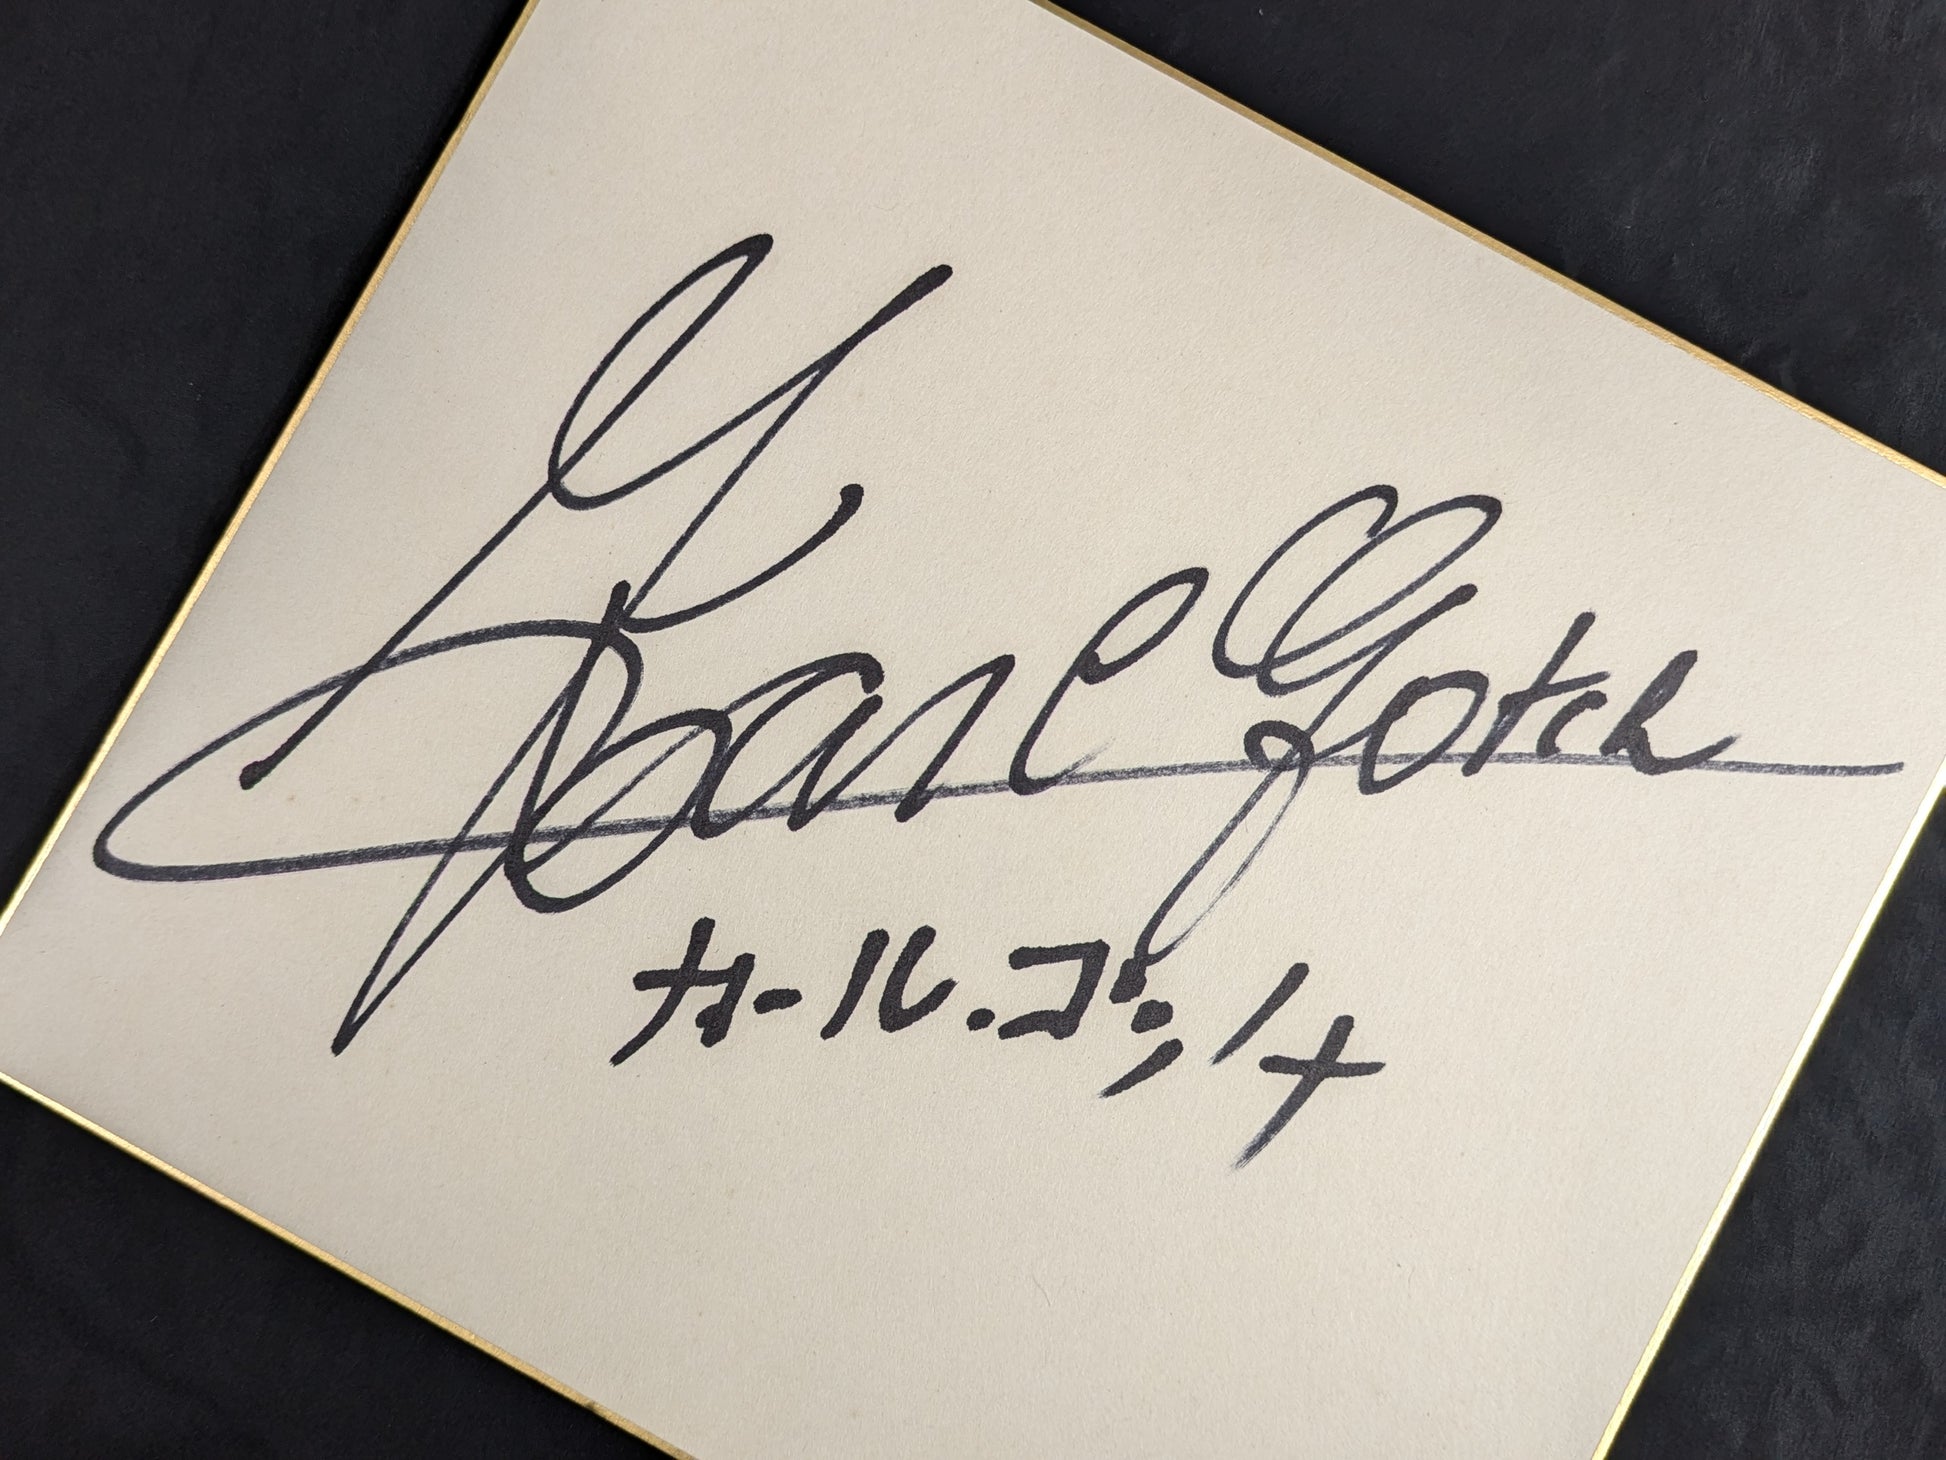 Karl Gotch
カール・ゴッチ